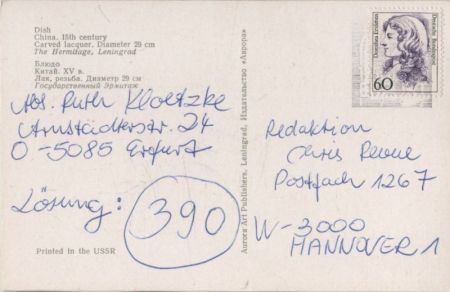 Dish
China. 15th century
Carved lacquer. Diameter 29 cm
The Hermitage, Leningrad
Блюдо
Китай. XV в.
Лак, резьба. Диаметр 29 см
Государственный Эрмитаж
Abs. Ruth Kloetzke
Arnstädterstr. 24
O-5085 Erfurt
Lösung: 390
Printed in the USSR
Aurora Art Publishers, Leningrad. Издательство «Аврора»
Dorothea Erxleben
Deutsche Bundespost
60
Redaktion
Chris Revue
Postfach 1267
W-3000
HANNOVER 1